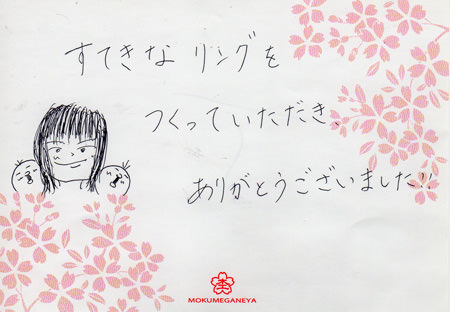 すてきな リングを
つくっていただき、
ありがとうございました!!
杢
MOKUMEGANEYA